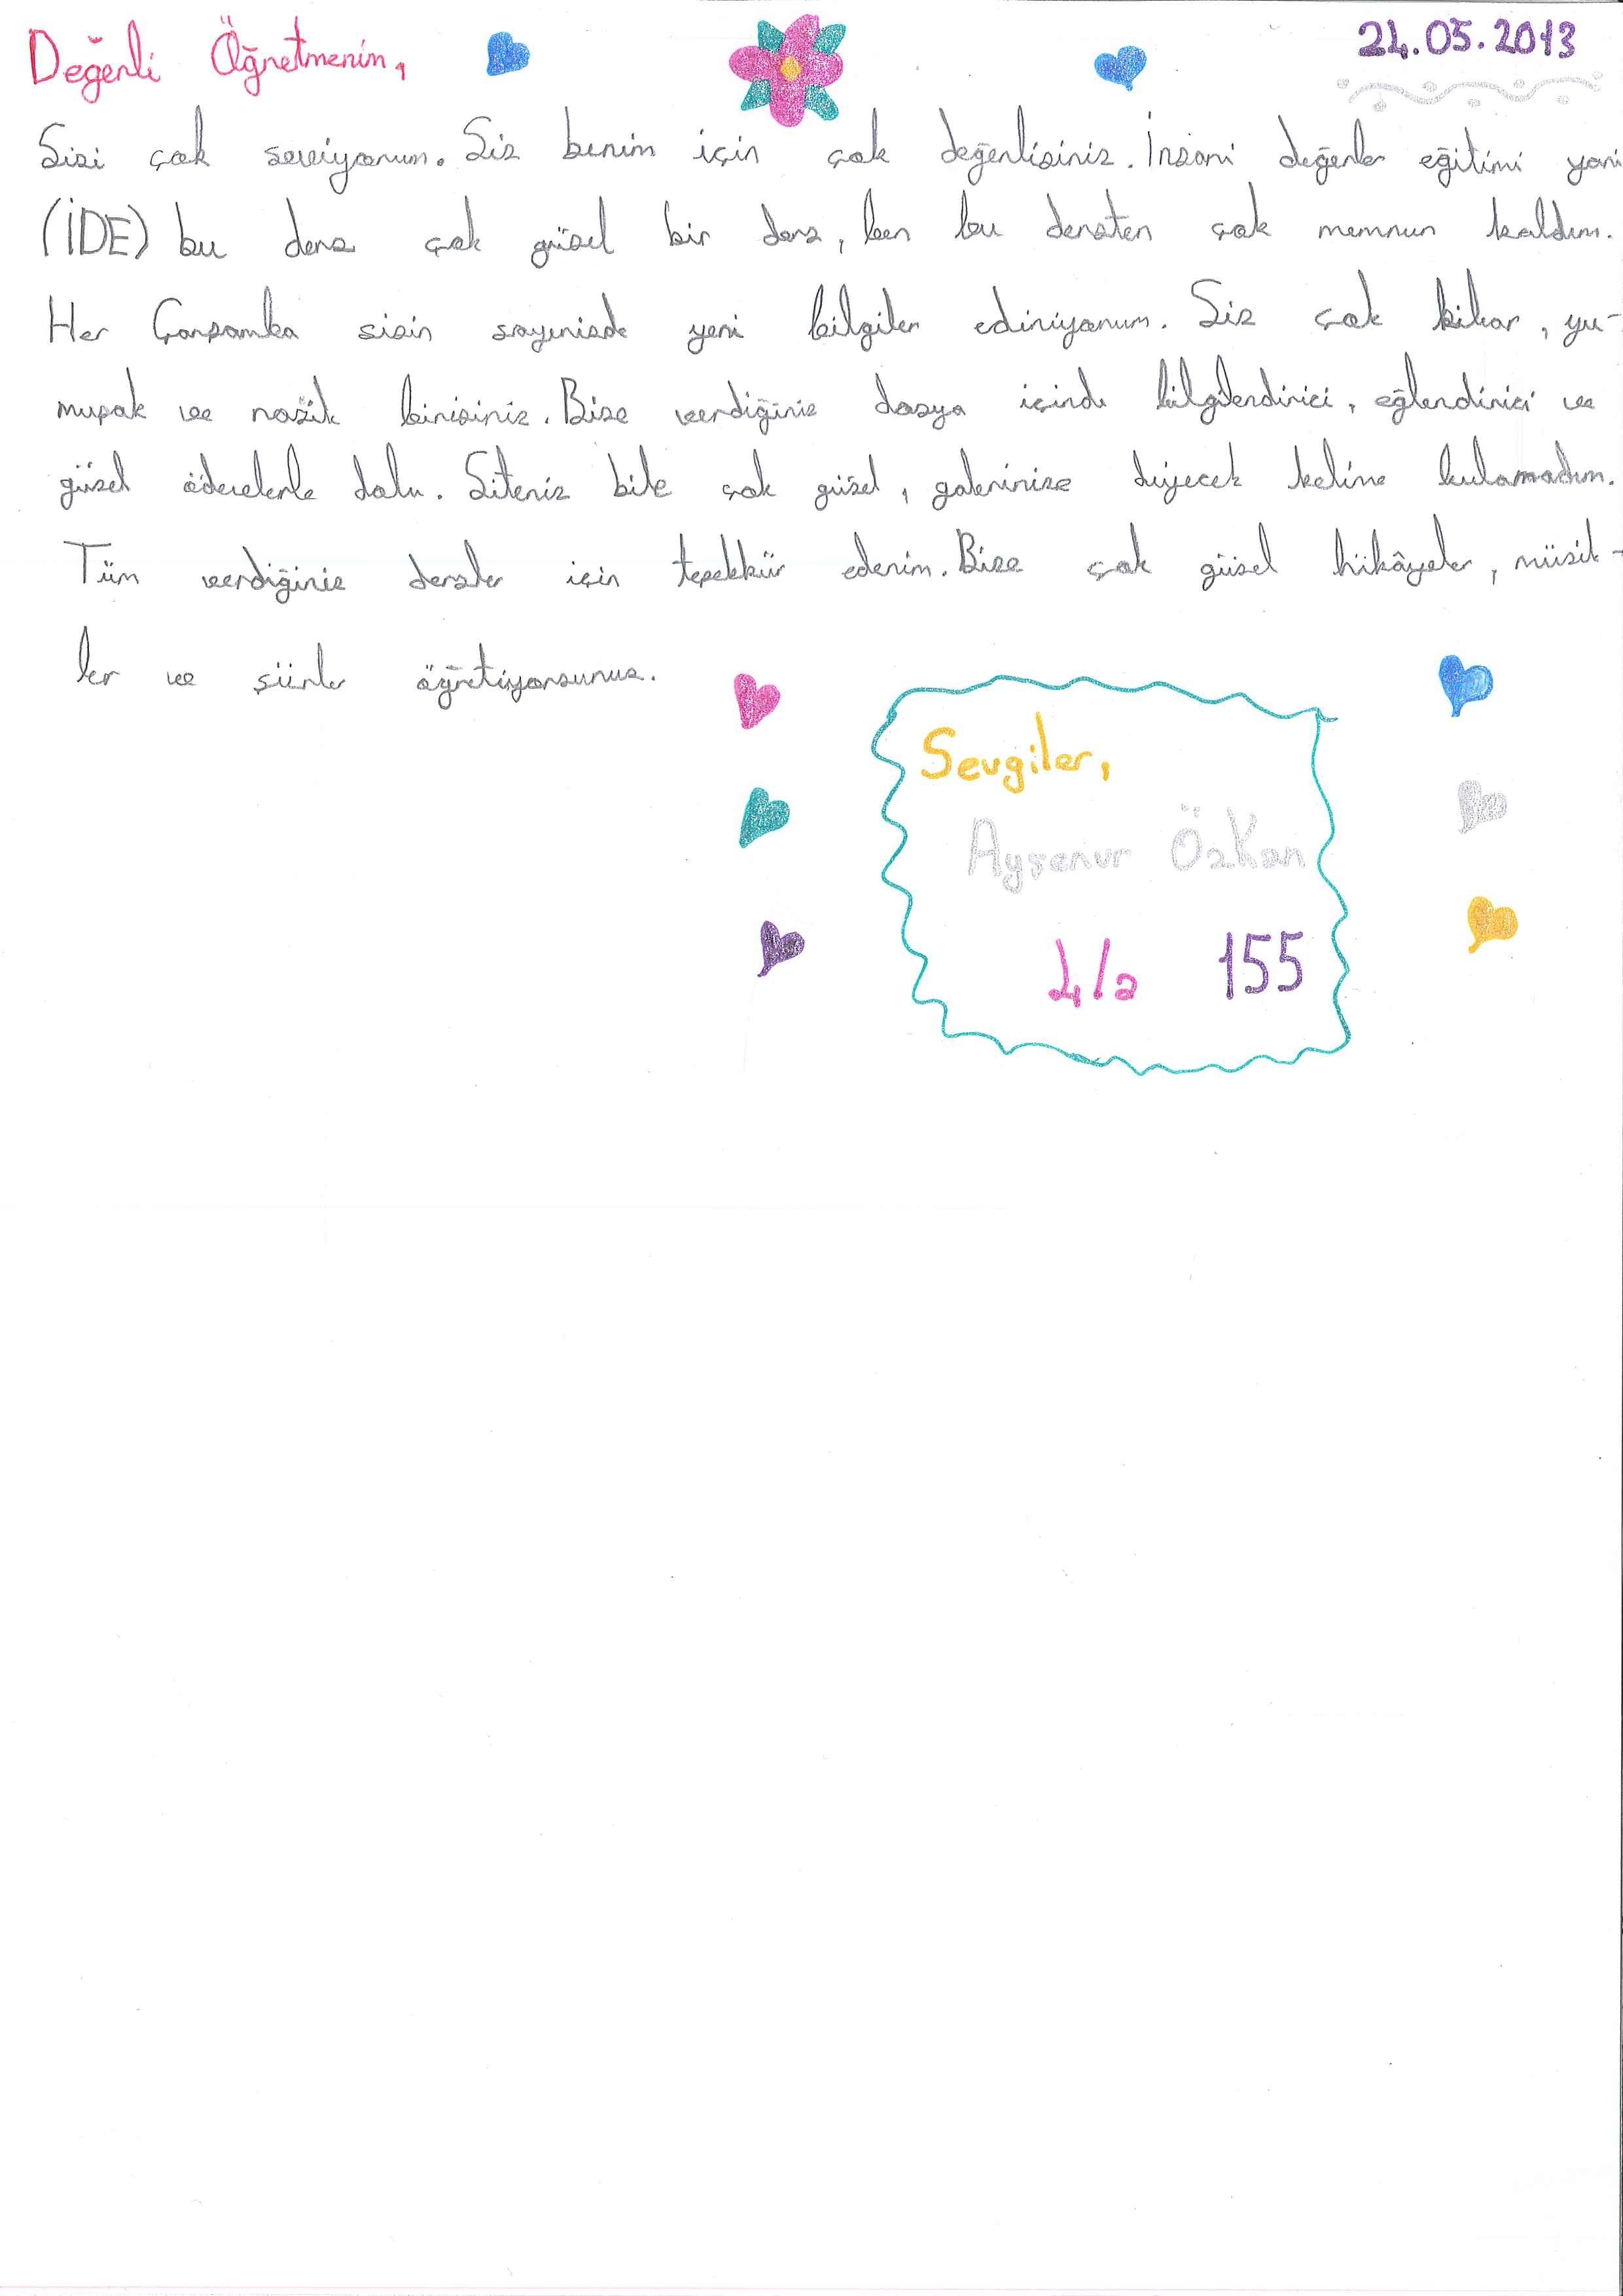 Değerli Öğretmenim,
24.05.2013
Sizi çok seviyorum. Siz benim için çok değerlisiniz. İnsani değerler eğitimi yani
(İDE) bu ders çok güzel bir ders, ben bu dersten çok memnun kaldım.
Her Çarşamba sizin sayenizde yeni bilgiler ediniyorum. Siz çok kibar, yu-
muşak ve nazik birisiniz. Bize verdiğiniz dosya içinde bilgilendirici, eğlendirici ve
güzel ödevlerle dolu. Siteniz bile çok güzel, galerinize diyecek kelime bulamadım.
Tüm verdiğiniz dersler için teşekkür ederim. Bize çok güzel hikâyeler, müzik-
ler ve şiirler öğretiyorsunuz.
Sevgiler,
Ayşenur Özkan
4/a 155